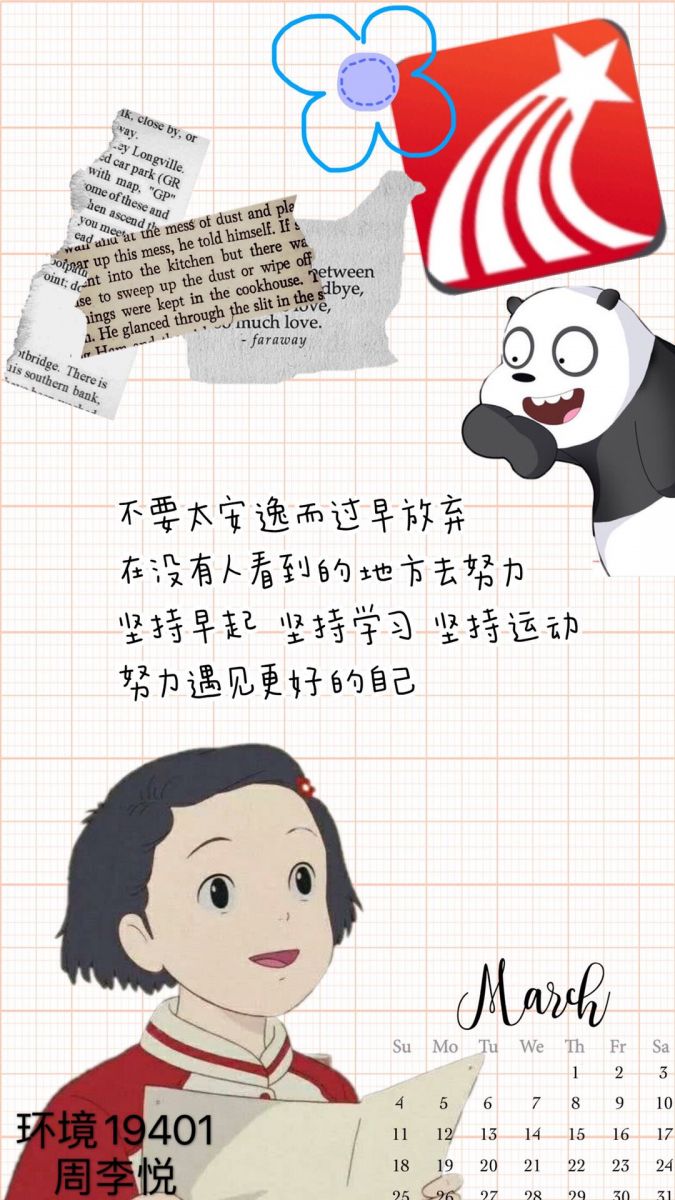 lk, close by, or
way.
ey Longville.
ed car park (GR
with map, "GP"
ome of these and
hen ascend th
you meet
ead
ootpath
oint; do
and at the mess of dust and pla
ar up this mess, he told himself. If s
nt into the kitchen but there wa
se to sweep up the dust or wipe off
nings were kept in the cookhouse. T
. He glanced through the slit in the s
otbridge. There is
his southern bank,
between
dbye,
love,
so much love.
- faraway
不要太安逸而过早放弃
在没有人看到的地方去努力
坚持早起 坚持学习 坚持运动
努力遇见更好的自己
March
Su Mo Tu We Th Fr Sa
1 2 3
4 5 6 7 8 9 10
11 12 13 14 15 16 17
18 19 20 21 22 23 24
25 26 27 28 29 30 31
环境19401
周李悦